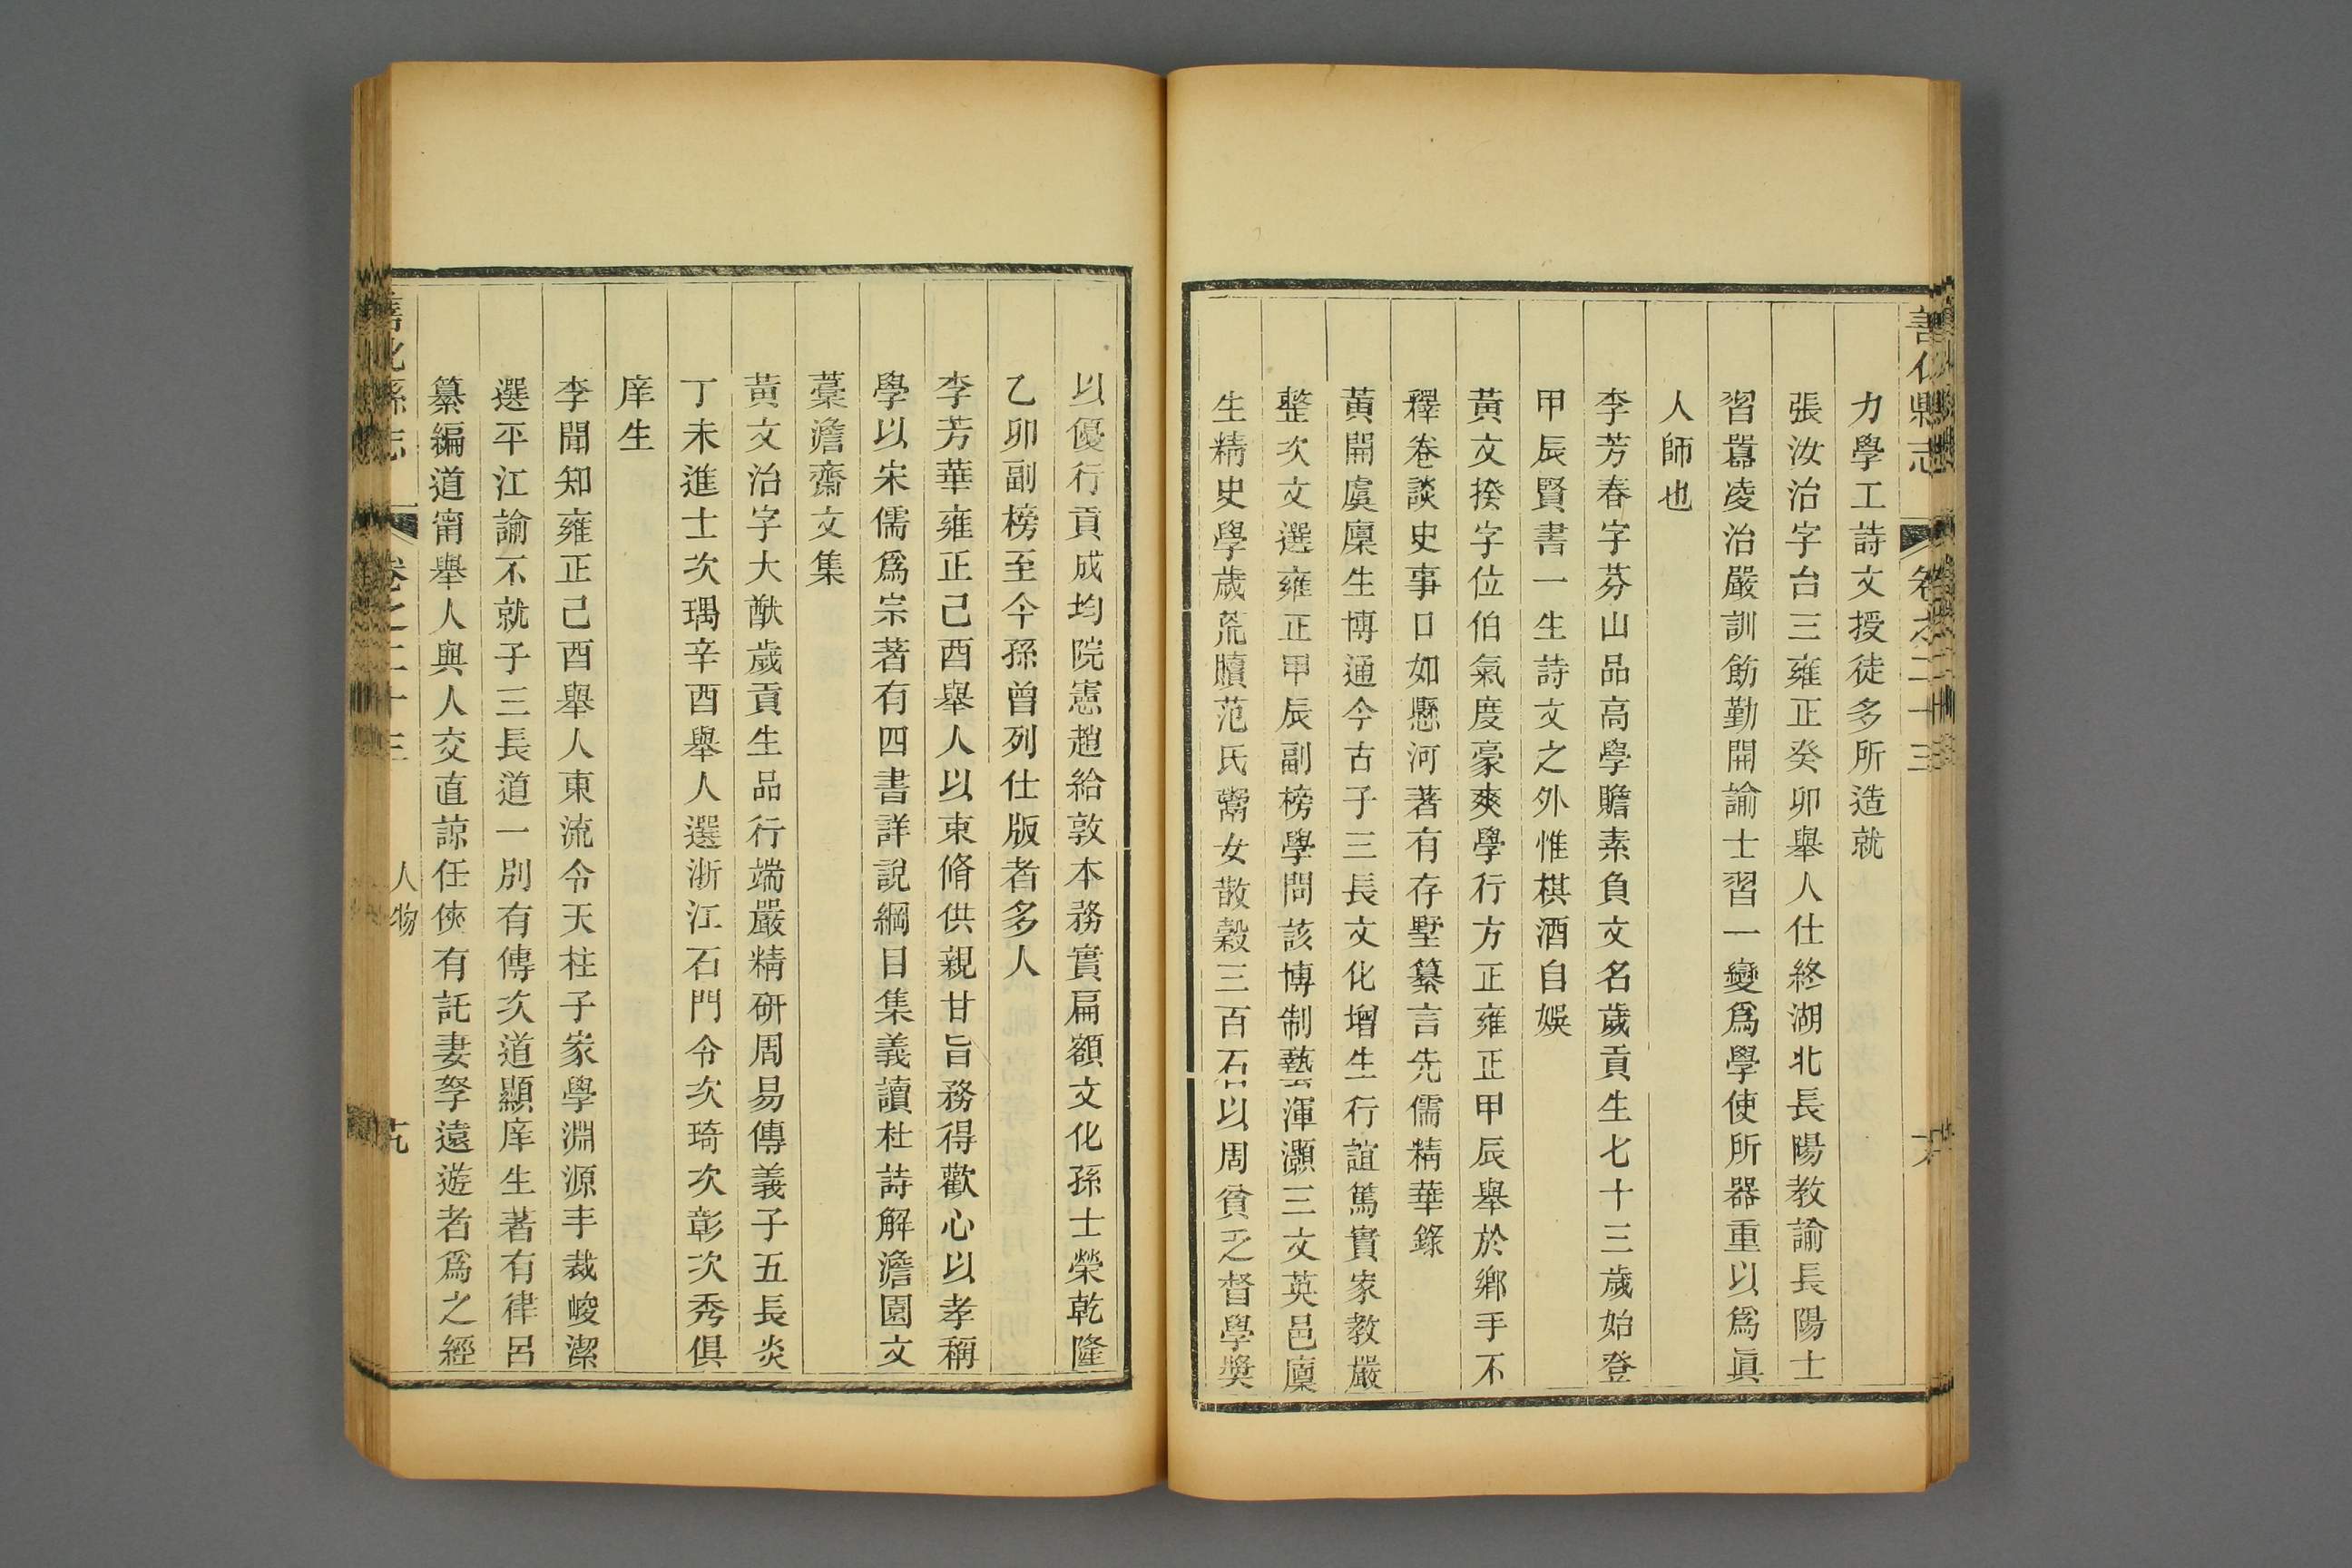 善化縣志
卷之二十三
力學工詩文授徒多所造就
張汝治字台三雍正癸卯舉人仕終湖北長陽教諭長陽士
習囂凌治嚴訓飭勤開諭士習一變爲學使所器重以爲眞
人師也
李芳春字芬山品高學贍素負文名歲貢生七十三歲始登
甲辰賢書一生詩文之外惟棋酒自娛
黃文揆字位伯氣度豪爽學行方正雍正甲辰舉於鄉手不
釋卷談史事口如懸河著有存墅纂言先儒精華錄
黃開虞廩生博通今古子三長文化增生行誼篤實家教嚴
整次文選雍正甲辰副榜學問該博制藝渾灝三文英邑廩
生精史學歲荒贖范氏鬻女散穀三百石以周貧乏督學獎
以優行貢成均院憲趙給敦本務實扁額文化孫士榮乾隆
乙卯副榜至今孫曾列仕版者多人
李芳華雍正己酉舉人以束脩供親甘旨務得歡心以孝稱
學以宋儒爲宗著有四書詳說綱目集義讀杜詩解澹園文
藁澹齋文集
黃文治字大猷歲貢生品行端嚴精研周易傳義子五長炎
丁未進士次瑀辛酉舉人選浙江石門令次琦次彰次秀俱
庠生
李聞知雍正己酉舉人東流令天柱子家學淵源丰裁峻潔
選平江諭不就子三長道一別有傳次道顯庠生著有律呂
纂編道甯舉人與人交直諒任俠有託妻孥遠遊者爲之經
善化縣志
卷之二十三
人物